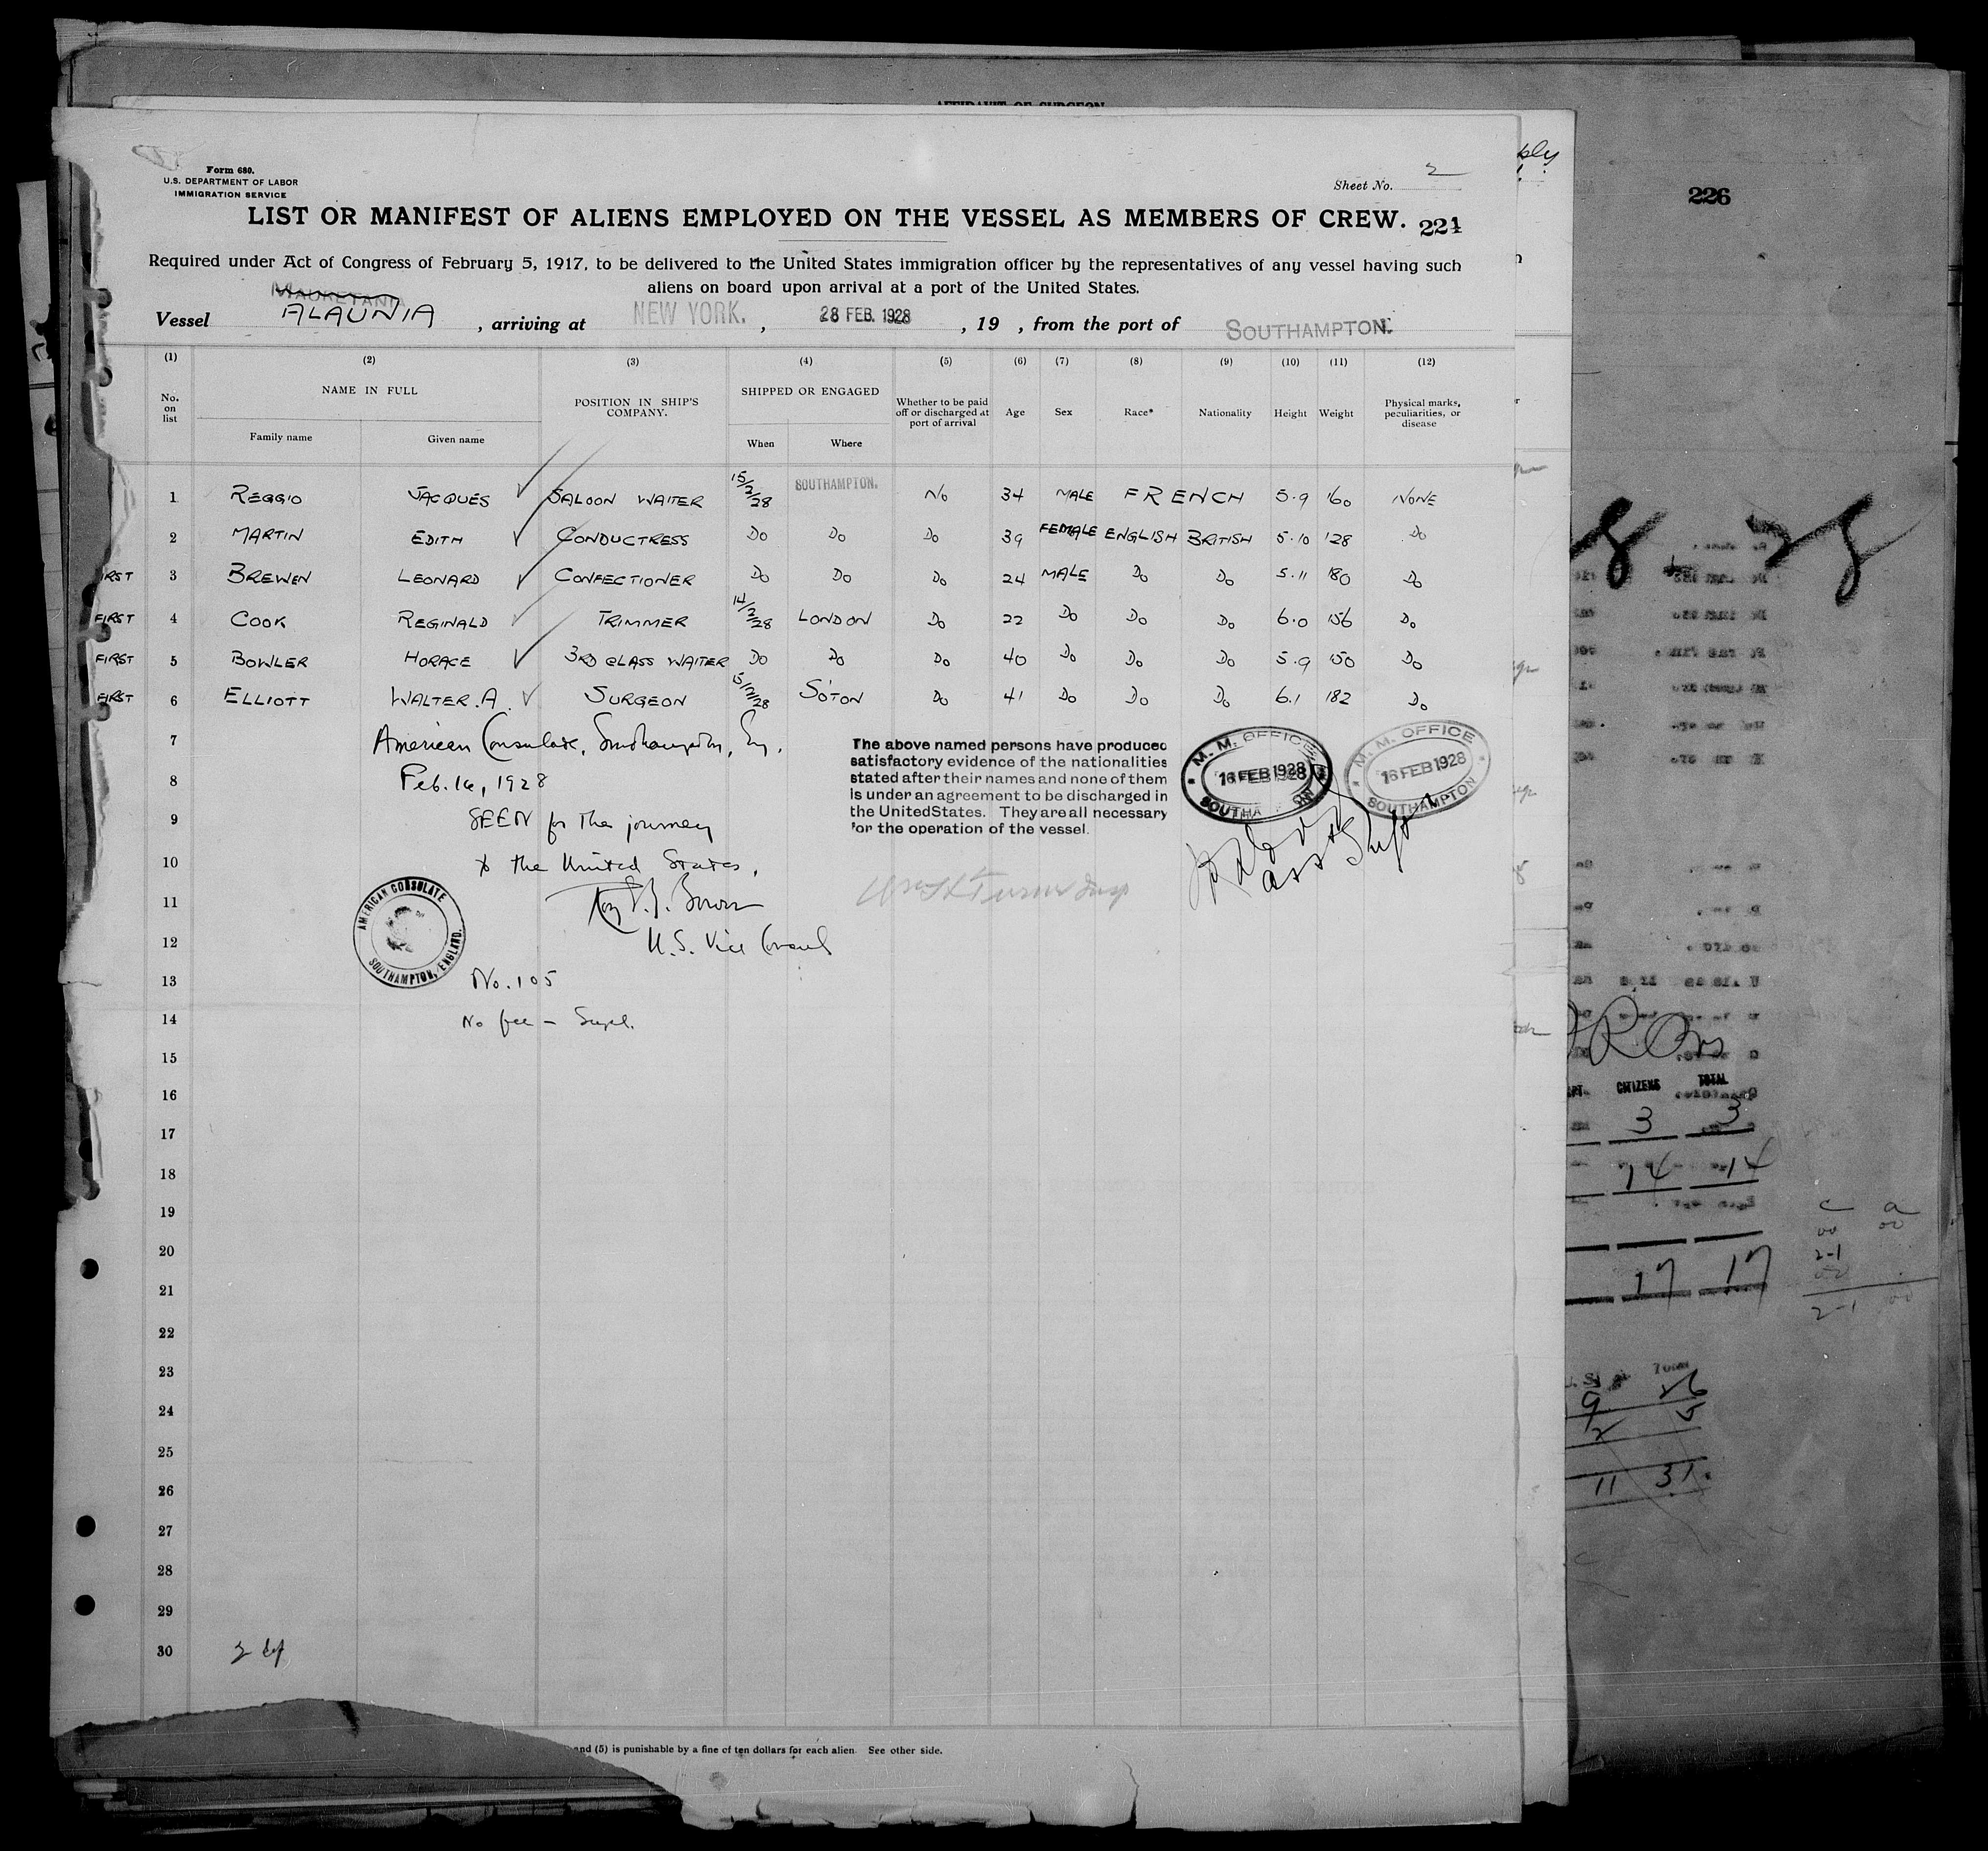 AFFIDAVIT OF SURGEON
Form 680.
U.S. DEPARTMENT OF LABOR
IMMIGRATION SERVICE
Sheet No. 2
LIST OR MANIFEST OF ALIENS EMPLOYED ON THE VESSEL AS MEMBERS OF CREW. 224
Required under Act of Congress of February 5, 1917, to be delivered to the United States immigration officer by the representatives of any vessel having such
aliens on board upon arrival at a port of the United States.
MAURETANIA
Vessel ALAUNIA, arriving at NEW YORK., 28 FEB. 1928, 19 , from the port of SOUTHAMPTON.
(1) (2) (3) (4) (5) (6) (7) (8) (9) (10) (11) (12)
No. on list NAME IN FULL POSITION IN SHIP'S COMPANY. SHIPPED OR ENGAGED Whether to be paid off or discharged at port of arrival Age Sex Race* Nationality Height Weight Physical marks, peculiarities, or disease
Family name Given name When Where
1 REGGIO JACQUES SALOON WAITER 15/2/28 SOUTHAMPTON. No 34 MALE FRENCH 5.9 160 NONE
2 MARTIN EDITH CONDUCTRESS Do Do Do 39 FEMALE ENGLISH BRITISH 5.10 128 Do
IRST 3 BREWEN LEONARD CONFECTIONER Do Do Do 24 MALE Do Do 5.11 180 Do
FIRST 4 COOK REGINALD TRIMMER 14/2/28 LONDON Do 22 Do Do Do 6.0 156 Do
FIRST 5 BOWLER HORACE 3RD CLASS WAITER Do Do Do 40 Do Do Do 5.9 150 Do
FIRST 6 ELLIOTT WALTER.A. SURGEON 15/2/28 SO'TON Do 41 Do Do Do 6.1 182 Do
7 American Consulate, Southampton, Eng.
8 Feb. 16, 1928
9 SEEN for the journey
10 to the United States,
11
12 U.S. Vice Consul
13 No. 105
14 No fee - Supl.
The above named persons have produced
satisfactory evidence of the nationalities
stated after their names and none of them
is under an agreement to be discharged in
the United States. They are all necessary
for the operation of the vessel.
M. M. OFFICE
16 FEB 1928
SOUTHAMPTON
M. M. OFFICE
16 FEB 1928
SOUTHAMPTON
AMERICAN CONSULATE
SOUTHAMPTON, ENGLAND.
15
16
17
18
19
20
21
22
23
24
25
26
27
28
29
30
and (5) is punishable by a fine of ten dollars for each alien. See other side.
226
CITIZENS TOTAL
3 3
14 14
17 17
11 31